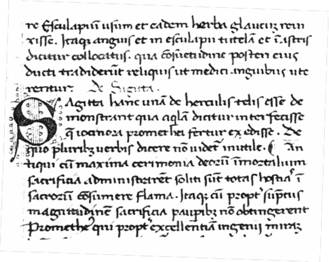 re Esculapiũ usum et eadem herba glaucũ rein
xisse. Itaqȝ anguis et in esculapii tutela et in astris
dicitur collocatus. qua cõsuetudine posteri eius
ducti tradiderũt reliquis ut medici anguibus ute
rentur. De Sagitta.
Sagitta hanc unã de herculis telis esse de
monstrant qua aq̃la dicitur interfecisse
q̃ iocinora promethei fertur exedisse. De
quo pluribȝ verbis dicere nõ videt̃ inutile. An
tiqui cũ maxima cerimonia deorũ inmortalium
sacrificia administrarẽt soliti sunt totas hostias ĩ
sacrorũ cõsumere flama. Itaqȝ cũ propt̃ sũptus
magnitudinẽ sacrificia paupibȝ nõ obtingerent
Prometheꝰ qui propt̃ excellentiã ingenii miraȝ